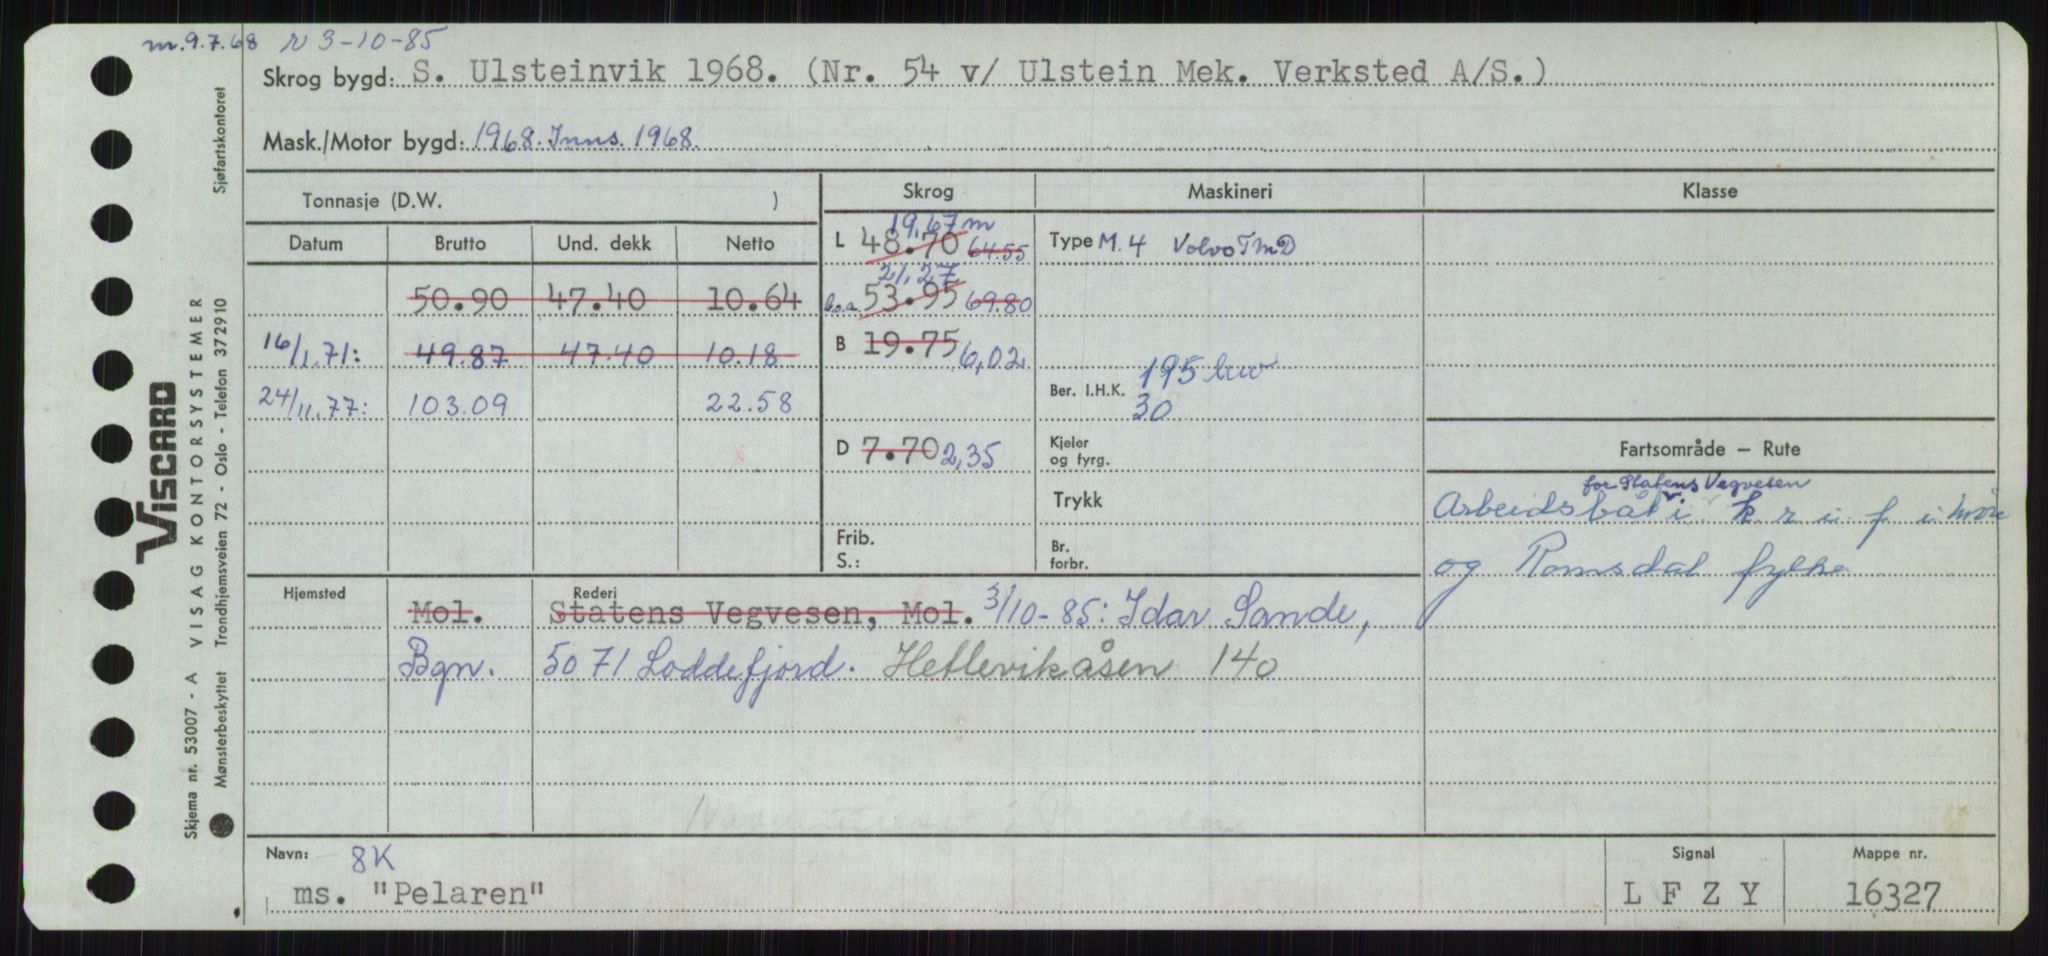 m.9.7.68 r 3-10-85
Skrog bygd: S. Ulsteinvik 1968. (Nr. 54 v/ Ulstein Mek. Verksted A/S.)
Mask./Motor bygd: 1968. Inns. 1968.
Tonnasje (D.W. )
Datum Brutto Und. dekk Netto
50.90 47.40 10.64
16/1.71: 49.87 47.40 10.18
24/11.77: 103.09 22.58
Skrog
19,67 m
L 48.70 64.55
21,27
l.o.a. 53.95 69.80
B 19.75 6,02
D 7.70 2,35
Frib.
S.:
Maskineri
Type M. 4 Volvo TMD
195 bw
Ber. I.H.K.
30
Kjeler
og fyrg.
Trykk
Br.
forbr.
Klasse
Fartsområde — Rute
for Statens Vegvesen
Arbeidsbåt i k r i f i Møre
og Romsdal fylke
Hjemsted Rederi
Mol. Statens Vegvesen, Mol. 3/10-85: Idar Sande,
Bgn. 5071 Loddefjord. Hetlevikåsen 140
Navn: 8K
ms. "Pelaren"
Signal
L F Z Y
Mappe nr.
16327
VISCARD
Skjema nr. 53007 - A VISAG KONTORSYSTEMER
Mønsterbeskyttet Trondhjemsveien 72 - Oslo - Telefon 372910 Sjøfartskontoret